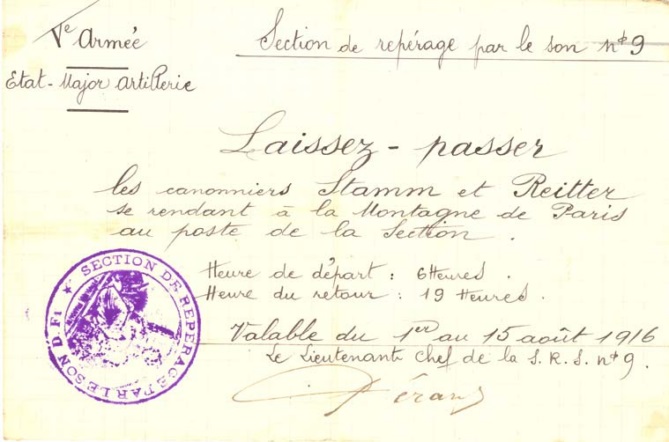 Vᵉ Armée
Section de repérage par le son nº 9
Etat-Major Artillerie
Laissez-passer
les canonniers Stamm et Reitter
se rendant à la Montagne de Paris
au poste de la Section.
Heure de départ : 6 Heures.
Heure du retour : 19 Heures.
Valable du 1er au 15 août 1916
Le Lieutenant Chef de la S.R.S. nº 9.
SECTION DE REPERAGE PAR LE SON